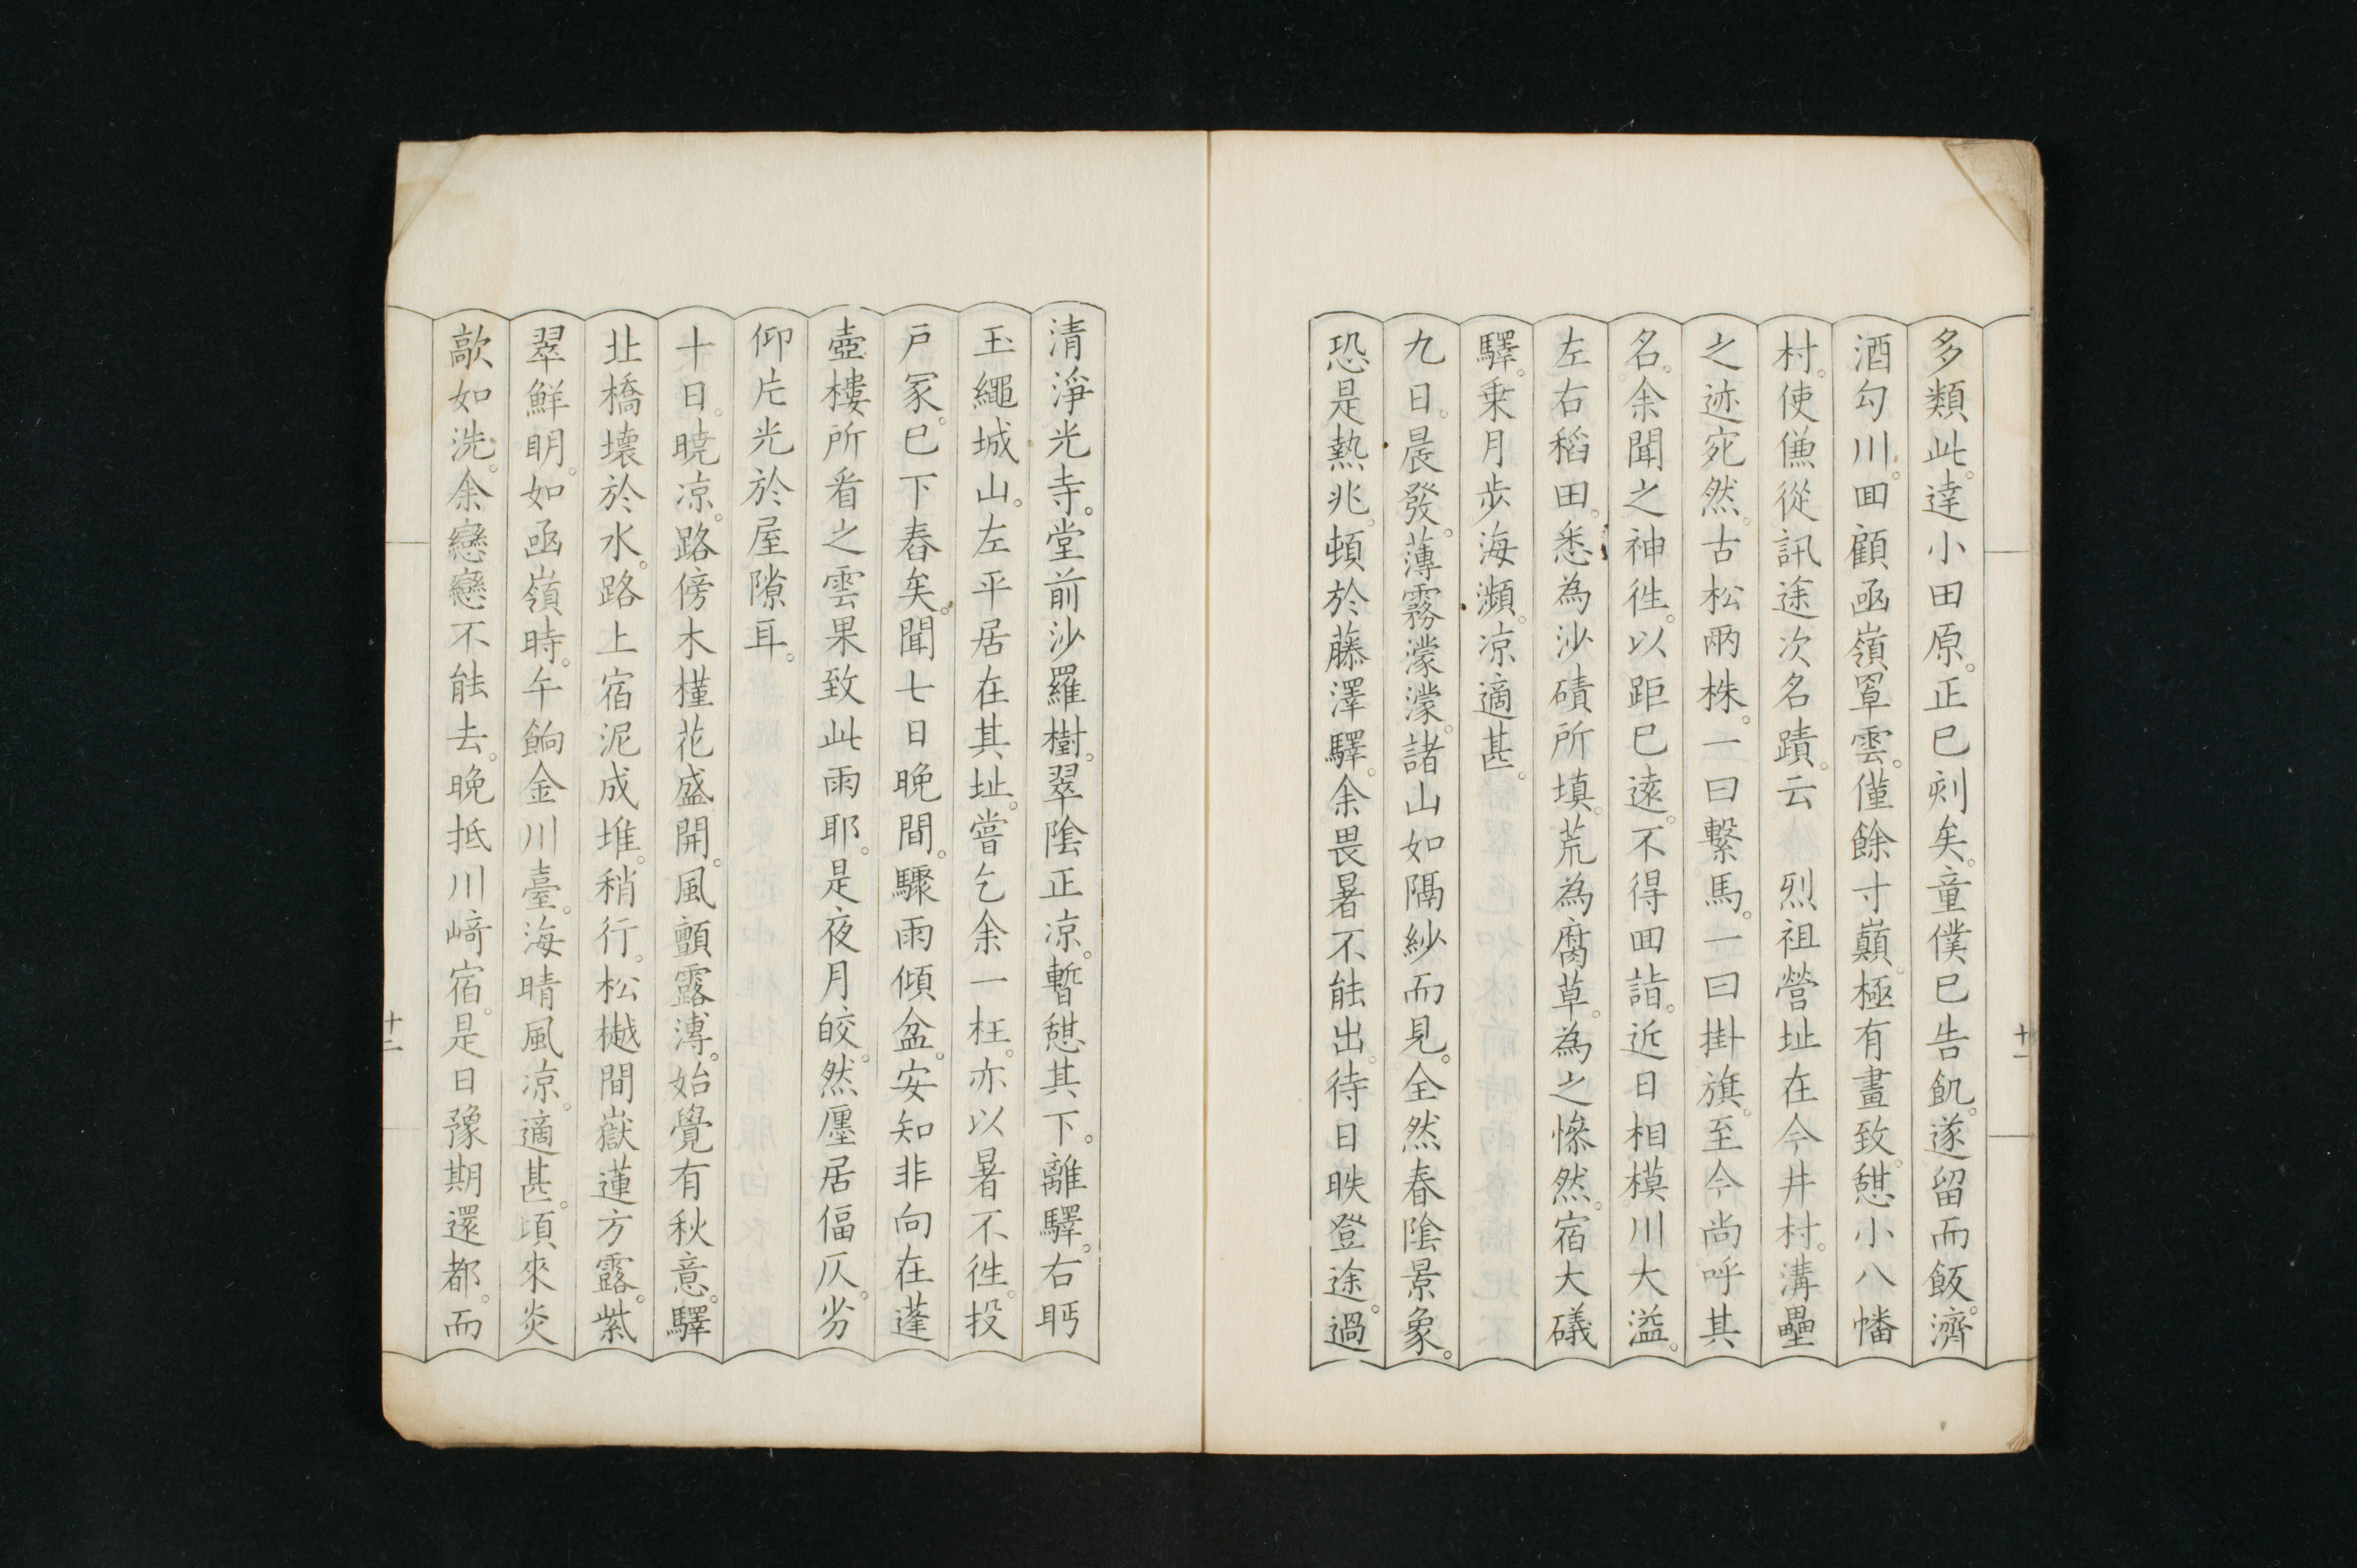 多類此。達小田原。正巳刻矣。童僕已告飢。遂留而飯。濟
酒勾川。回顧函嶺罩雲。僅餘寸巔。極有畫致。憇小八幡
村。使傔從訊途次名蹟。云　烈祖營址在今井村。溝壘
之迹宛然。古松兩株。一曰繋馬。一曰掛旗。至今尚呼其
名。余聞之神徃。以距已遠。不得回詣。近日相模川大溢。
左右稻田。悉為沙磧所填。荒為腐草。為之慘然。宿大礒
驛。乗月步海瀕。凉適甚。
九日。晨發。薄霧濛濛。諸山如隔紗而見。全然春陰景象。
恐是熱兆。頓於藤澤驛。余畏暑不能出。待日昳登途。過
清淨光寺。堂前沙羅樹。翠陰正凉。暫憇其下。離驛。右眄
玉繩城山。左平居在其址。嘗乞余一枉。亦以暑不徃。投
戸冢。已下舂矣。聞七日晩間。驟雨傾盆。安知非向在蓬
壺樓所看之雲果致此雨耶。是夜月皎。然廛居偪仄。劣
仰片光於屋隙耳。
十日。曉凉。路傍木槿花盛開。風顫露漙。始覺有秋意。驛
北橋壞於水。路上宿泥成堆。稍行。松樾間嶽蓮方露。紫
翠鮮明。如函嶺時。午餉金川臺。海晴風凉。適甚。頃來炎
歊如洗。余戀戀不能去。晩抵川﨑宿。是日豫期還都。而
十一
十二